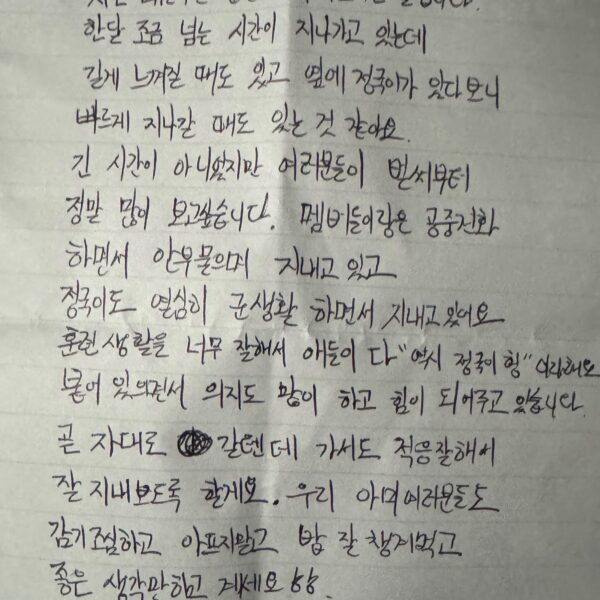 한달 조금 넘는 시간이 지나가고 있는데
길게 느껴질 때도 있고 옆에 정국이가 있다보니
빠르게 지나갈 때도 있는 것 같아요.
긴 시간이 아니었지만 여러분들이 벌써부터
정말 많이 보고싶습니다. 멤버들이랑은 공중전화
하면서 안부물으며 지내고 있고
정국이도 열심히 군생활 하면서 지내고 있어요
훈련생활을 너무 잘해서 애들이 다 "역시 정국이 형" 이라해요
붙어 있으면서 의지도 많이 하고 힘이 되어주고 있습니다.
곧 자대로 갈텐데 가서도 적응잘해서
잘 지내보도록 할게요. 우리 아미여러분들도
감기조심하고 아프지말고 밥 잘 챙겨먹고
좋은 생각만하고 계세요